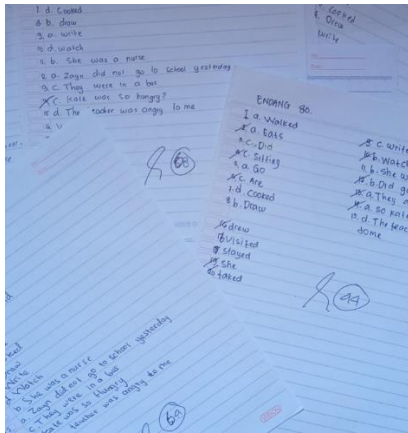 7. d. Cooked
8. b. draw
9. a. write
10. d. watch
11. b. She was a nurse
12. a. Zayn did not go to school yesterday
13. c. They were in a bus
14. c. Kate was so hungry?
15. d. The teacher was angry to me
68
Cooked
Draw
write
ENDANG 80.
1 a. Walked
2. a. Eats
3. c. Did
4. c. Sitting
5. a. Go
6. c. Are
7. d. Cooked
8. b. Draw
16 drew
17 visited
18 stayed
19 She
20 taked
9. c. write
10. b. Watch
11. b. She w
12. b. Did g
13. a. They
14. a. so kate
15. d. The teac
tome
44
b. She was a nurse
a. Zayn did not go to school yesterday
c. They were in a bus
Kate was so hungry
teacher was angry to me